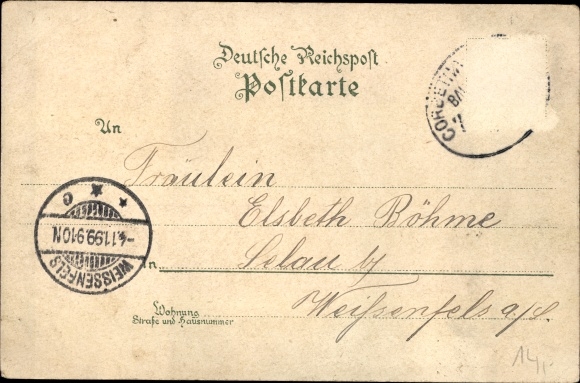 Deutsche Reichspost
Postkarte
CORBETHA
An
Fräulein
Elsbeth Böhme
Selau b/
In
Weißenfels a/S.
WEISSENFELS
-4.11.99.9-10N.
C
Wohnung
Straße und Hausnummer
14,